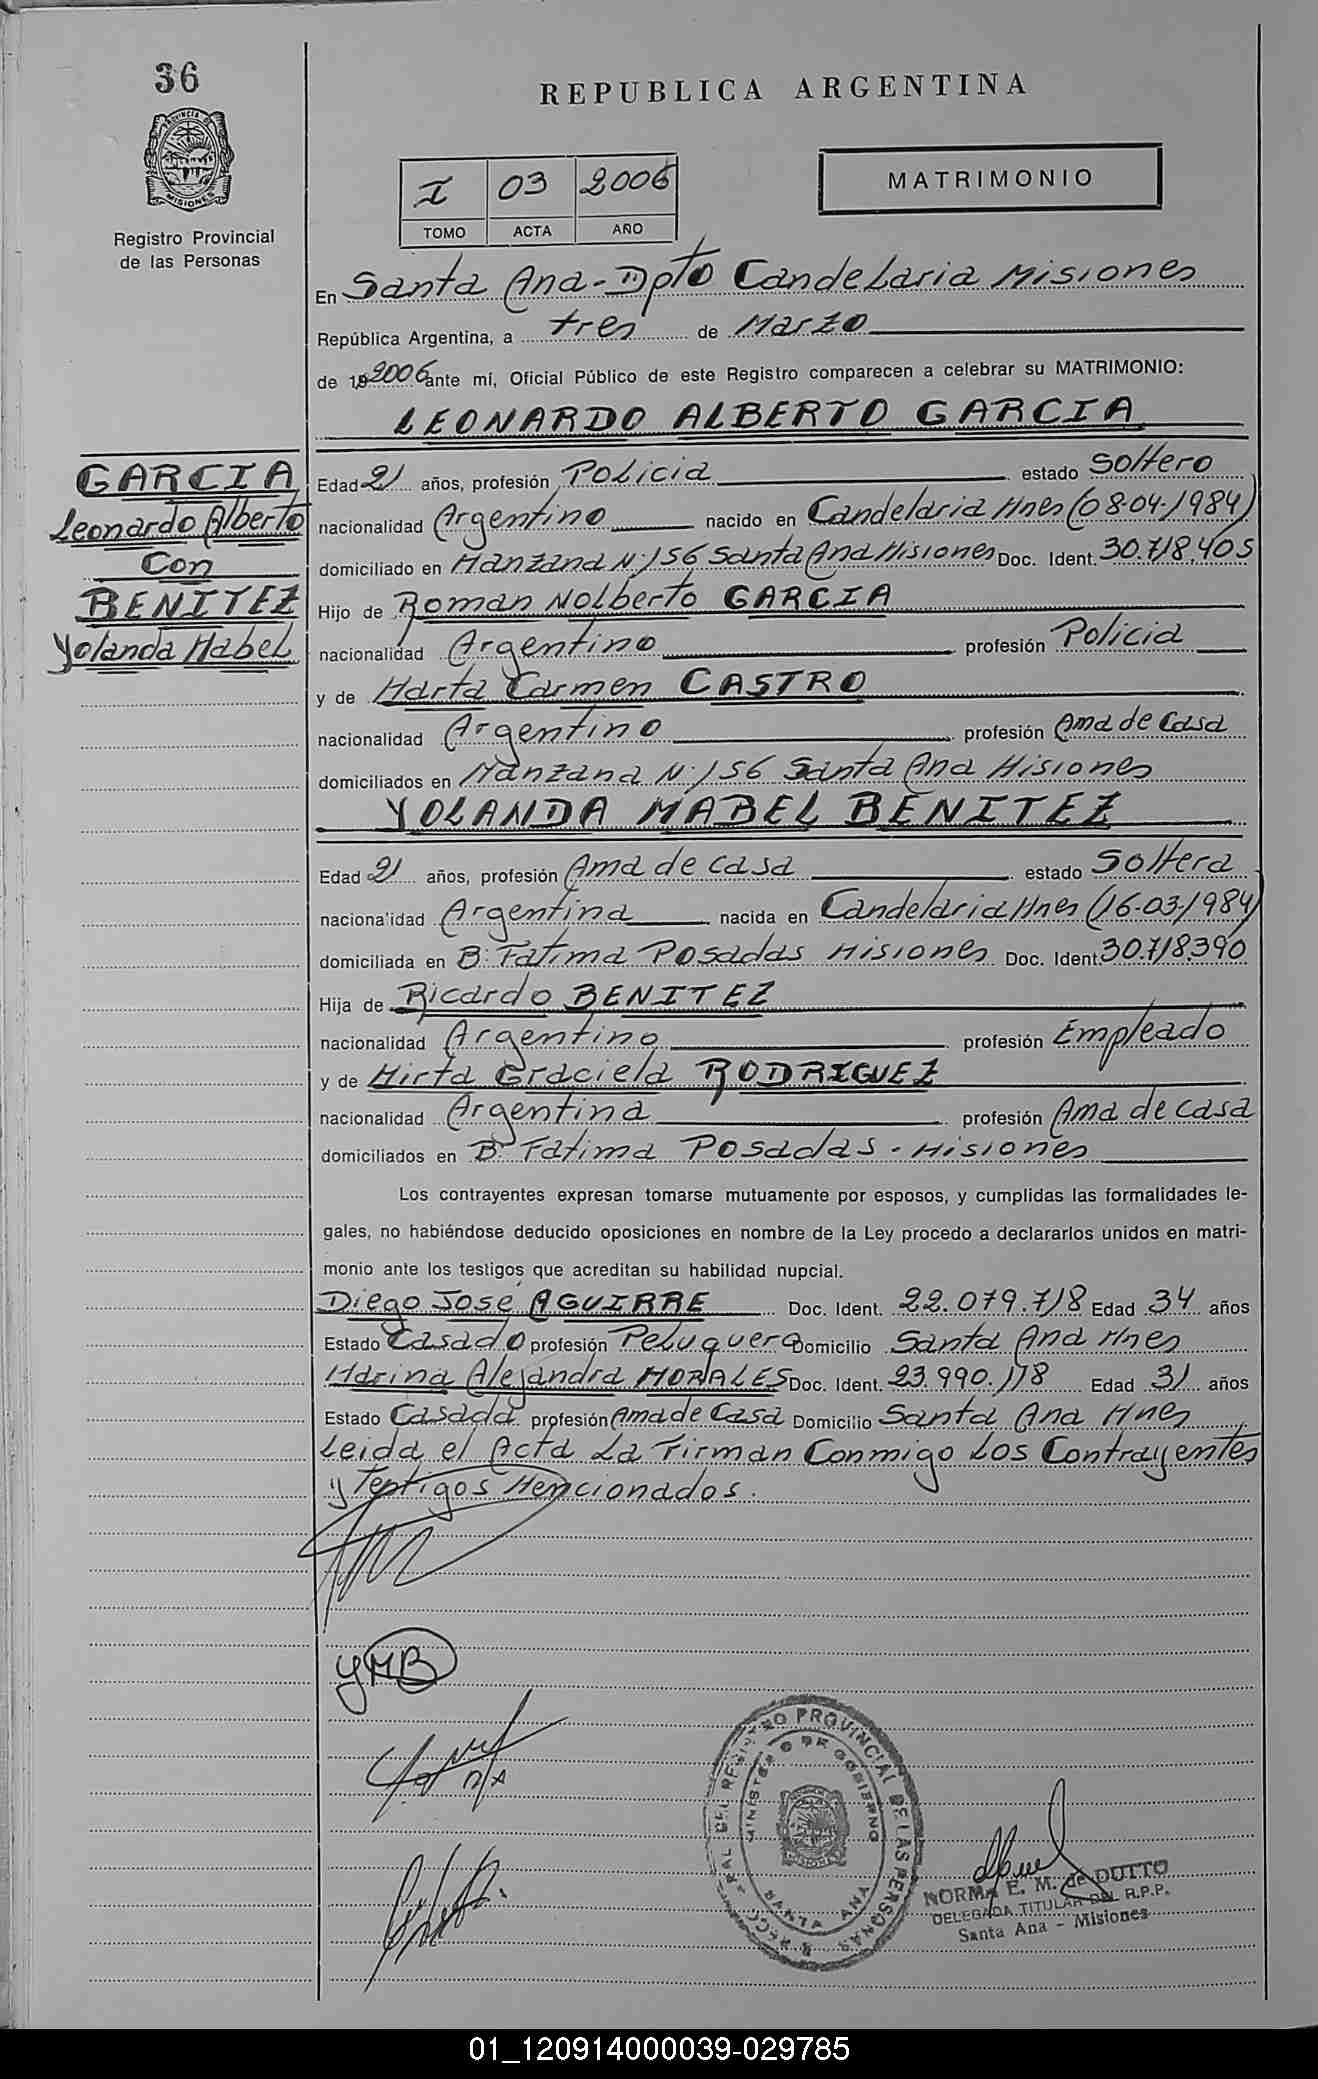 36
REPUBLICA ARGENTINA
PROVINCIA DE
MISIONES
Registro Provincial
de las Personas
I 03 2006
TOMO ACTA AÑO
MATRIMONIO
En Santa Ana - Dpto Candelaria Misiones
República Argentina, a tres de Marzo
de 19 2006 ante mí, Oficial Público de este Registro comparecen a celebrar su MATRIMONIO:
LEONARDO ALBERTO GARCIA
GARCIA
Leonardo Alberto
Con
BENITEZ
Yolanda Mabel
Edad 21 años, profesión Policia estado Soltero
nacionalidad Argentino nacido en Candelaria Mnes (08-04-1984)
domiciliado en Manzana N: 156 Santa Ana Misiones Doc. Ident. 30.718.405
Hijo de Roman Nolberto GARCIA
nacionalidad Argentino profesión Policia
y de Marta Carmen CASTRO
nacionalidad Argentino profesión Ama de Casa
domiciliados en Manzana N: 156 Santa Ana Misiones
YOLANDA MABEL BENITEZ
Edad 21 años, profesión Ama de casa estado Soltera
nacionalidad Argentina nacida en Candelaria Mnes (16-03-1984)
domiciliada en B: Fatima Posadas Misiones Doc. Ident. 30.718.390
Hija de Ricardo BENITEZ
nacionalidad Argentino profesión Empleado
y de Mirta Graciela RODRIGUEZ
nacionalidad Argentina profesión Ama de casa
domiciliados en B: Fatima Posadas - Misiones
Los contrayentes expresan tomarse mutuamente por esposos, y cumplidas las formalidades le-
gales, no habiéndose deducido oposiciones en nombre de la Ley procedo a declararlos unidos en matri-
monio ante los testigos que acreditan su habilidad nupcial.
Diego Jose AGUIRRE Doc. Ident. 22.079.718 Edad 34 años
Estado Casado profesión Peluquero Domicilio Santa Ana Mnes
Marina Alejandra MORALES Doc. Ident. 23.990.178 Edad 31 años
Estado Casada profesión Ama de Casa Domicilio Santa Ana Mnes
Leida el Acta La Firman Conmigo Los Contrayentes
y Testigos Mencionados.
YMB
REGISTRO PROVINCIAL DE LAS PERSONAS
MINISTERIO DE GOBIERNO
MISIONES
SANTA ANA
NORMA E. M. de DUTTO
DELEGADA TITULAR DEL R.P.P.
Santa Ana - Misiones
01_120914000039-029785